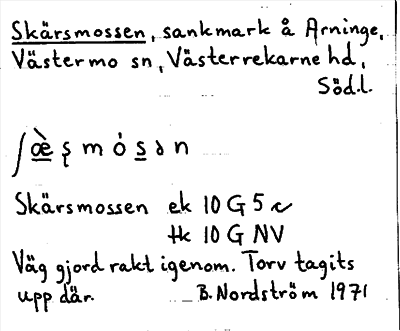 Skärsmossen, sankmark å Arninge,
Västermo sn, Västerrekarne hd,
Söd.l.
ʃæ̀ʂmósən
Skärsmossen ek 10 G 5 c
Hk 10 G NV
Väg gjord rakt igenom. Torv tagits
upp där. B. Nordström 1971